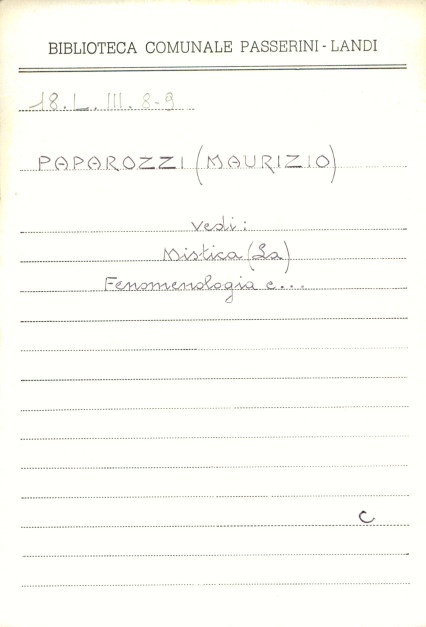 BIBLIOTECA COMUNALE PASSERINI - LANDI
18. L. III. 8-9
PAPAROZZI (MAURIZIO)
vedi:
Mistica (La)
Fenomenologia e...
C